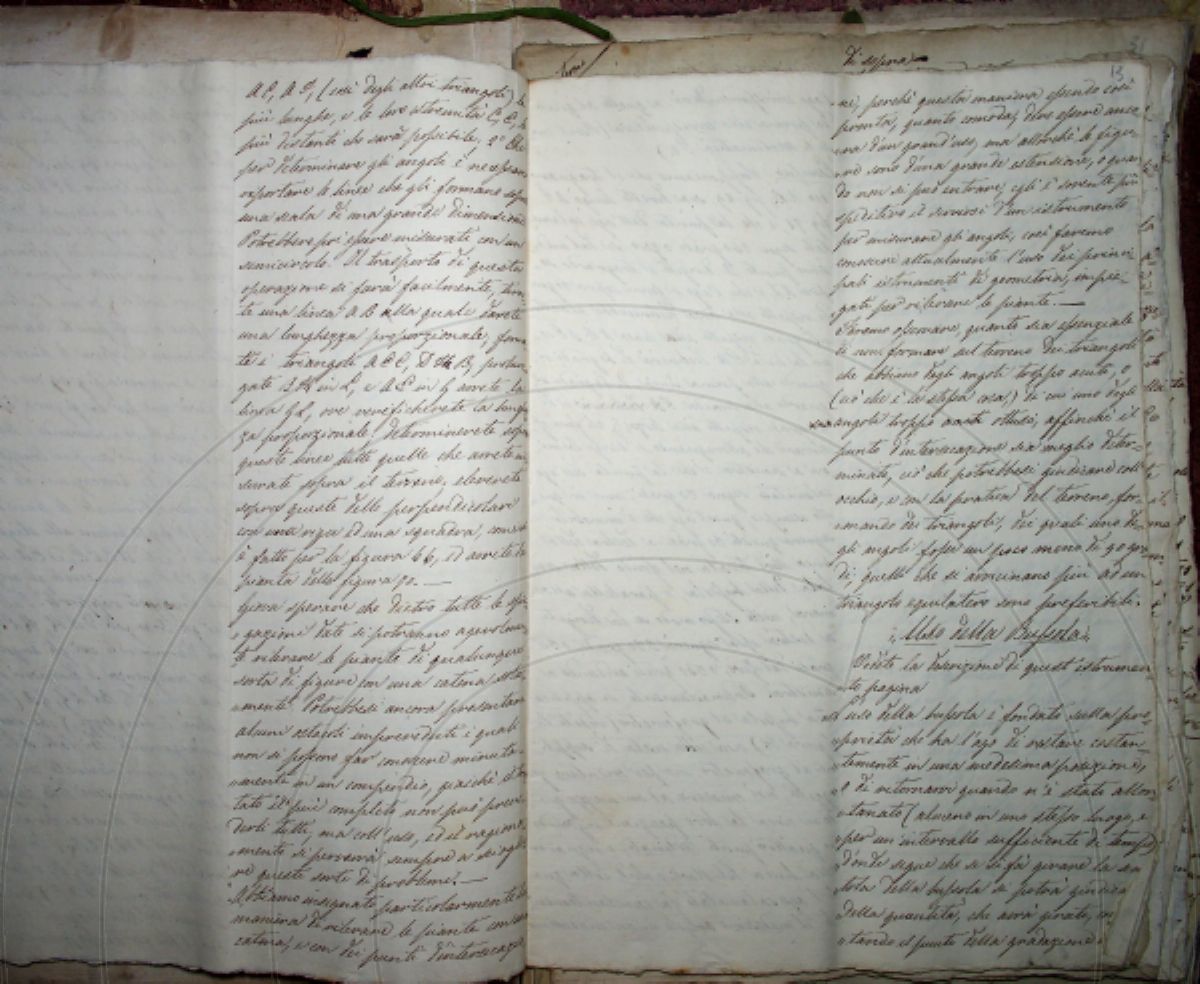 AC, AD, (così degli altri triangoli) le
più lunghe, e le loro estremità C, E, le
più distanti che sarà possibile, 2° Che
per determinare gli angoli è necessario
rapportare le linee che gli formano sopra
una scala di una grande dimensione
Potrebbero poi essere misurati con un
semicircolo. Il trasporto di questa
operazione si farà facilmente, tira
te una linea AB alla quale darete
una lunghezza proporzionale, forma
te i triangoli ACE, D B, prolun
gate in L, e AE in G avrete la
linea GL, ove verificherete la lunghez
za proporzionale. Determinerete sopra
queste linee tutte quelle che avrete mi
surate sopra il terreno, eleverete
sopra queste delle perpendicolari
con una riga ed una squadra, come si
è fatto per la figura 66, ed avrete la
pianta della figura 70. —
Giova sperare che dietro tutte le spie
gazioni date si potranno agevolmen
te rilevare le piante di qualunque
sorta di figure con una catena sola
mente. Potrebbesi ancora presentare
alcuni ostacoli impreveduti i quali
non si possono far conoscere minuta-
mente in un compendio, giacchè il trat
tato il più completo non può preve
derli tutti, ma coll'uso, ed il ragiona
mento si perverrà sempre a sciogle
re queste sorti di problemi. —
Abbiamo insegnato particolarmente la
maniera di rilevare le piante con una
catena, e con dei punti d'intersecazio
di sopra
13
ne, perchè questa maniera essendo così
pronta, quanto comoda, deve essere anco
ra d'un grand'uso, ma allorchè le figu
re sono d'una grande estensione, o quan
do non si può entrare, egli è sovente più
speditivo il servirsi d'un istrumento
per misurare gli angoli, così faremo
conoscere attualmente l'uso dei princi
pali istrumenti di geometria, impie
gati per rilevare le piante. —
Faremo osservare, quanto sia essenziale
di non formare sul terreno dei triangoli
che abbiano degli angoli troppo acuti, o
(ciò che è la stessa cosa) di cui uno degli
angoli troppo ottuso, affinchè il
punto d'intersecazione sia meglio deter-
minato, ciò che potrebbesi giudicare coll'
occhio, e con la pratica del terreno, for-
mando dei triangoli, dei quali uno de-
gli angoli fosse un poco meno di 90 gra
di, quelli che si avvicinano più ad un
triangolo equilatero sono preferibili.
Uso della Bussola
Vedete la descrizione di quest'istrumen
to pagina
L'uso della bussola è fondato sulla pro-
prietà che ha l'ago di restare costan
temente in una medesima posizione,
o di ritornarvi quando n'è stato allon
tanato (almeno in uno stesso luogo, e
per un intervallo sufficiente di tempo)
donde segue che se si fà girare la sca
tola della bussola si potrà giudica
della quantità, che avrà girato, no
tando il punto della gradazione